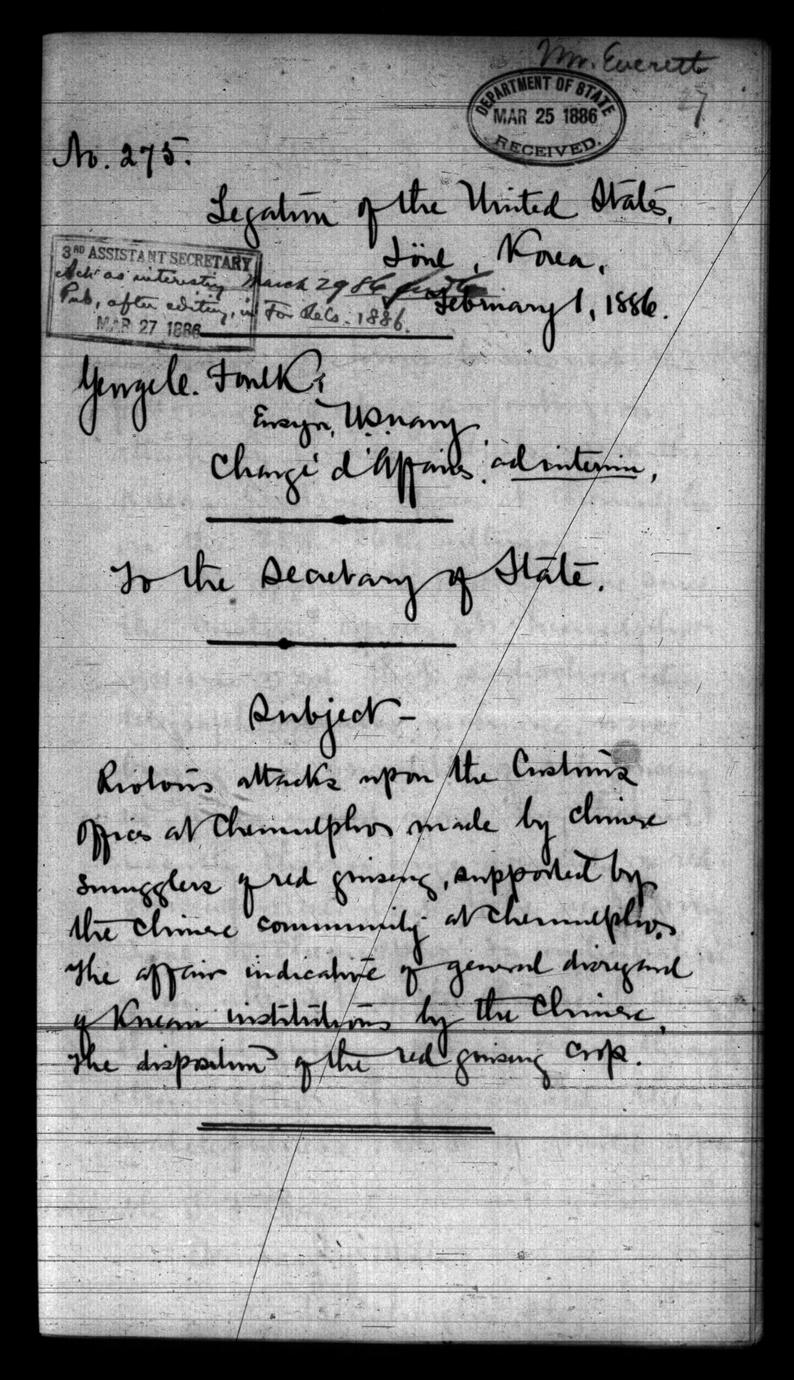 Mr. Everett
27
DEPARTMENT OF STATE
MAR 25 1886
RECEIVED.
No. 275.
Legation of the United States,
Söul, Korea,
3RD ASSISTANT SECRETARY
Ack as interesting March 29 86
Pub, after editing, in For Rels. 1886.
MAR 27 1886
February 1, 1886.
George C. Foulk,
Ensign, U.S. navy
Chargé d'Affaires ad interim,
To the Secretary of State.
Subject –
Riotous attacks upon the Customs
offices at Chemulpho made by Chinese
smugglers of red ginseng, supported by
the Chinese community at Chemulpho.
The affair indicative of general disregard
of Korean institutions by the Chinese.
The disposition of the red ginseng crop.